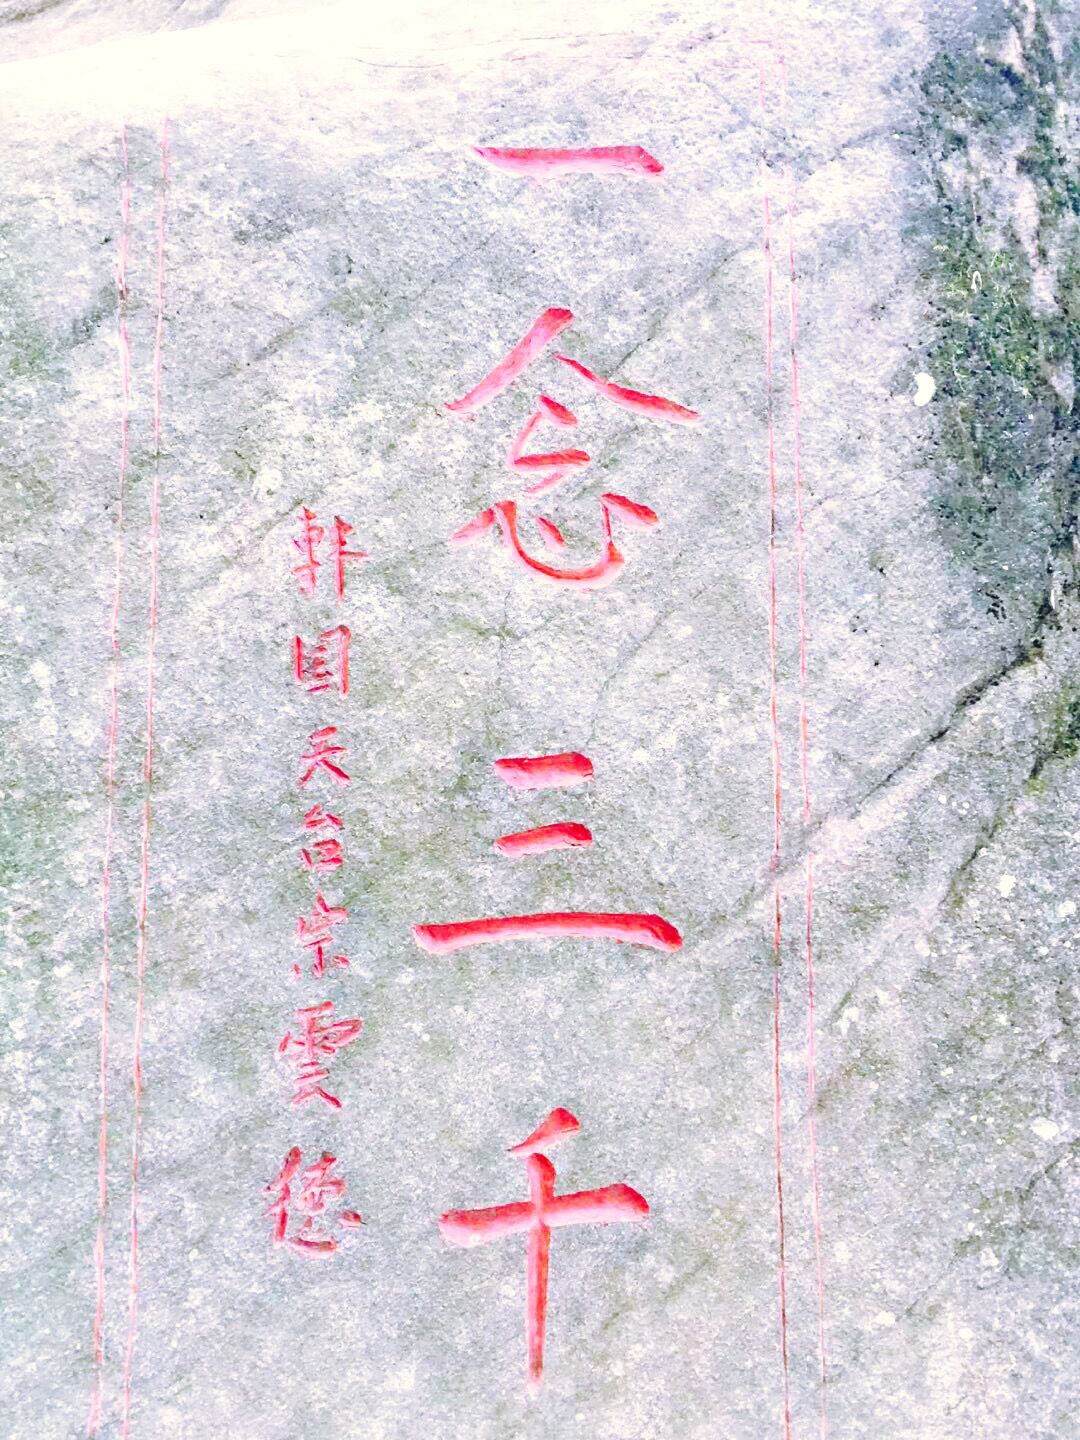 一念三千
韩国天台宗雲德